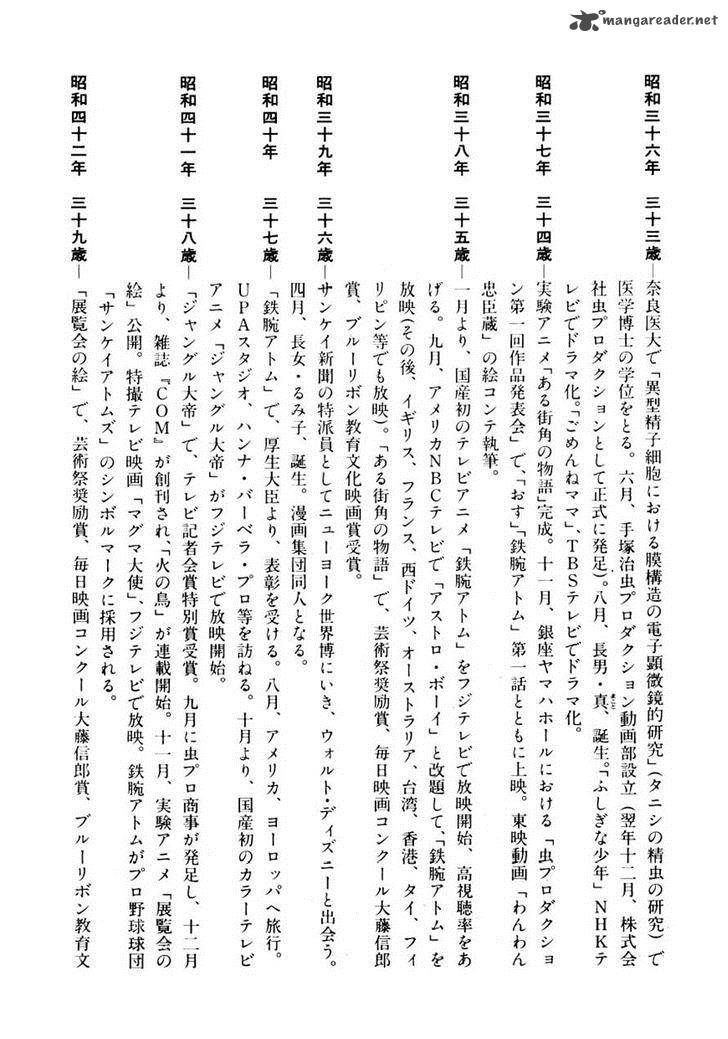 mangareader.net
昭和三十六年　三十三歳―奈良医大で「異型精子細胞における膜構造の電子顕微鏡的研究」(タニシの精虫の研究)で
医学博士の学位をとる。六月、手塚治虫プロダクション動画部設立(翌年十二月、株式会
社虫プロダクションとして正式に発足)。八月、長男・真、誕生。「ふしぎな少年」NHKテ
まこと
レビでドラマ化。「ごめんねママ」、TBSテレビでドラマ化。
昭和三十七年　三十四歳―実験アニメ「ある街角の物語」完成。十一月、銀座ヤマハホールにおける「虫プロダクショ
ン第一回作品発表会」で、「おす」「鉄腕アトム」第一話とともに上映。東映動画「わんわん
忠臣蔵」の絵コンテ執筆。
昭和三十八年　三十五歳―一月より、国産初のテレビアニメ「鉄腕アトム」をフジテレビで放映開始、高視聴率をあ
げる。九月、アメリカNBCテレビで「アストロ・ボーイ」と改題して、「鉄腕アトム」を
放映(その後、イギリス、フランス、西ドイツ、オーストラリア、台湾、香港、タイ、フィ
リピン等でも放映)。「ある街角の物語」で、芸術祭奨励賞、毎日映画コンクール大藤信郎
賞、ブルーリボン教育文化映画賞受賞。
昭和三十九年　三十六歳―サンケイ新聞の特派員としてニューヨーク世界博にいき、ウォルト・ディズニーと出会う。
四月、長女・るみ子、誕生。漫画集団同人となる。
昭和四十年　三十七歳―「鉄腕アトム」で、厚生大臣より、表彰を受ける。八月、アメリカ、ヨーロッパへ旅行。
UPAスタジオ、ハンナ・バーベラ・プロ等を訪ねる。十月より、国産初のカラーテレビ
アニメ「ジャングル大帝」がフジテレビで放映開始。
昭和四十一年　三十八歳―「ジャングル大帝」で、テレビ記者会賞特別賞受賞。九月に虫プロ商事が発足し、十二月
より、雑誌『COM』が創刊され、「火の鳥」が連載開始。十一月、実験アニメ「展覧会の
絵」公開。特撮テレビ映画「マグマ大使」、フジテレビで放映。鉄腕アトムがプロ野球球団
「サンケイアトムズ」のシンボルマークに採用される。
昭和四十二年　三十九歳―「展覧会の絵」で、芸術祭奨励賞、毎日映画コンクール大藤信郎賞、ブルーリボン教育文